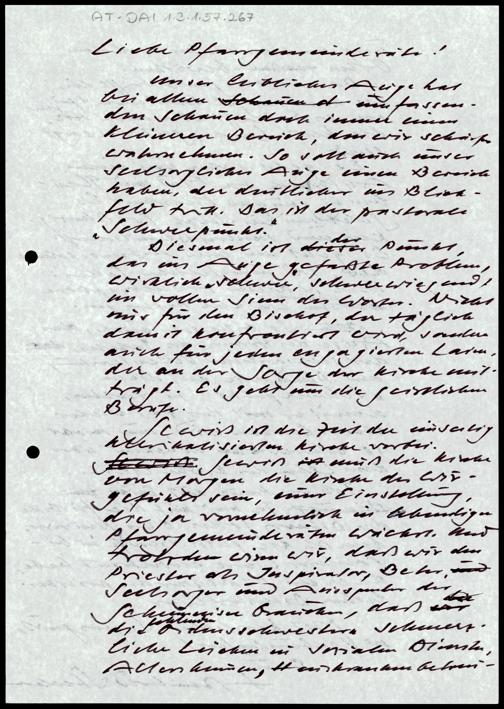 AT-DAI 1.3.1.57.267
Liebe Pfarrgemeinderäte!
Unser leibliches Auge hat
bei allem umfassen-
den Schauen doch immer einen
kleineren Bereich, den wir scharf
wahrnehmen. So soll auch unser
seelsorgliches Auge einen Bereich
haben, der deutlicher ins Blick-
feld tritt. Das ist der pastorale
„Schwerpunkt."
Diesmal ist der Punkt,
das ins Auge gefaßte Problem,
wirklich schwer, schwerwiegend
im vollen Sinn des Wortes. Nicht
nur für den Bischof, der täglich
damit konfrontiert wird, sondern
auch für jeden engagierten Laien,
der an der Sorge der Kirche mit-
trägt. Es geht um die geistlichen
Berufe.
Gewiß ist die Zeit der einseitig
klerikalisierten Kirche vorbei.
Gewiß muß die Kirche
von Morgen die Kirche des Wir-
gefühls sein, einer Einstellung,
die ja vornehmlich in lebendigen
Pfarrgemeinderäten wächst. Und
trotzdem wissen wir, daß wir den
Priester als Inspirator, Beter,
Seelsorger und Ausspender der
brauchen, daß
die fehlenden Ordensschwestern schmerz-
liche Lücken in sozialen Dienste,
Altersheimen, Hauskrankenbetreu-